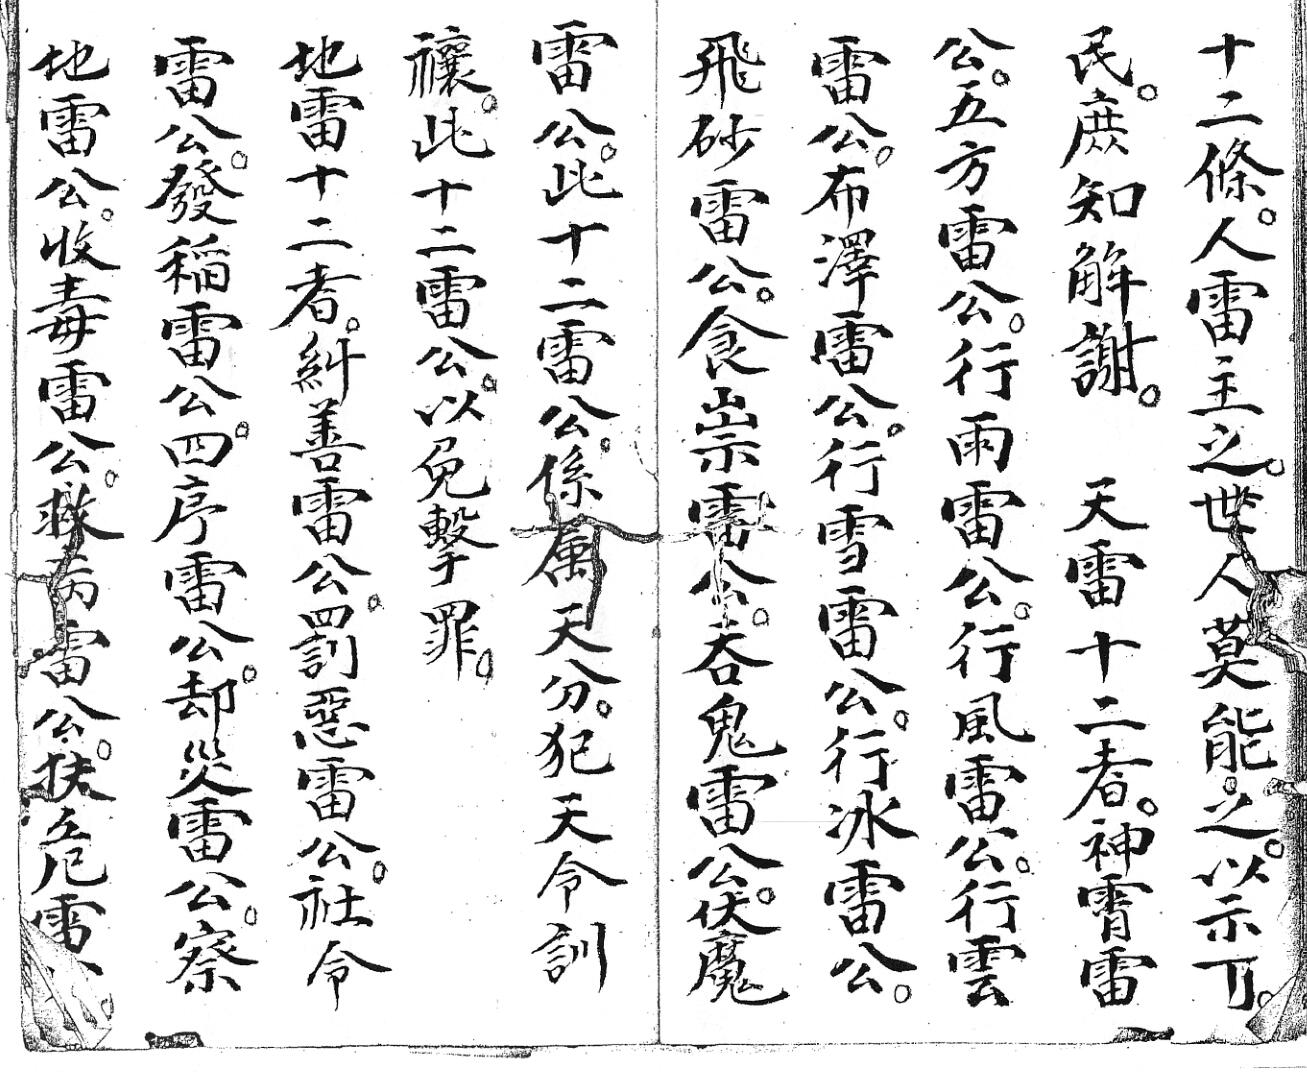 十二條。人雷主之。世人莫能之。以示下。
民。庶知解謝。　天雷十二者。神霄雷
公。五方雷公。行雨雷公。行風雷公。行雲
雷公。布澤雷公。行雪雷公。行冰雷公。
飛砂雷公。食祟雷公。吞鬼雷公。伏魔
雷公。此十二雷公。係屬天分。犯天令訓
禳。此十二雷公。以免擊罪。
地雷十二者。糾善雷公。罰惡雷公。社令
雷公。發稻雷公。四序雷公。却災雷公。察
地雷公。收毒雷公。救病雷公。扶危雷公。